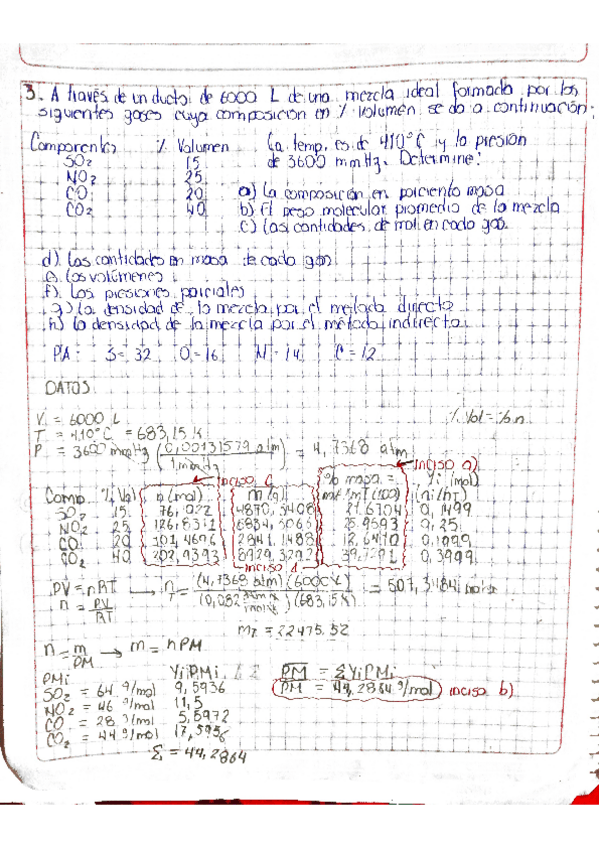 3. A través de un ducto de 6000 L de una mezcla ideal formada por los
siguientes gases cuya composición en % volumen se da a continuación:
Componentes % Volumen La temp. es de 410°C y la presión
SO2 15 de 3600 mmHg. Determine:
NO2 25
CO 20 a) La composición en porciento masa
CO2 40 b) El peso molecular promedio de la mezcla
c) Las cantidades de mol en cada gas.
d) Las cantidades en masa de cada gas
e. Los volúmenes
f). Las presiones parciales
g) La densidad de la mezcla por el método directo
h) la densidad de la mezcla por el método indirecto.
PA: S=32 O=16 N=14 C=12
DATOS
V = 6000 L % Vol = % n
T = 410°C = 683,15 K
P = 3600 mmHg (0,00131579 atm / 1 mmHg) = 4,7368 atm
inciso c inciso a)
Comp. % Vol n (mol) m (g) % masa = mi/mT (100) Yi (mol) (ni/nT)
SO2 15 0,1499
NO2 25 0,25
CO 20 101,4696 2841,1488 12,6410 0,1999
CO2 40 202,9393 8929,3292 0,3999
inciso d
PV = nRT → nT = (4,7368 atm)(6000 L) / (0,082)(683,15 K) = 507,3484
n = PV/RT
mT = 22475.52
n = m/PM → m = nPM
PMi YiPMi PM = ΣYiPMi
SO2 = 64 g/mol 9,5936 PM = 44,2864 g/mol inciso b)
NO2 = 46 g/mol 11,5
CO = 28 g/mol 5,5972
CO2 = 44 g/mol 17,5956
Σ = 44,2864